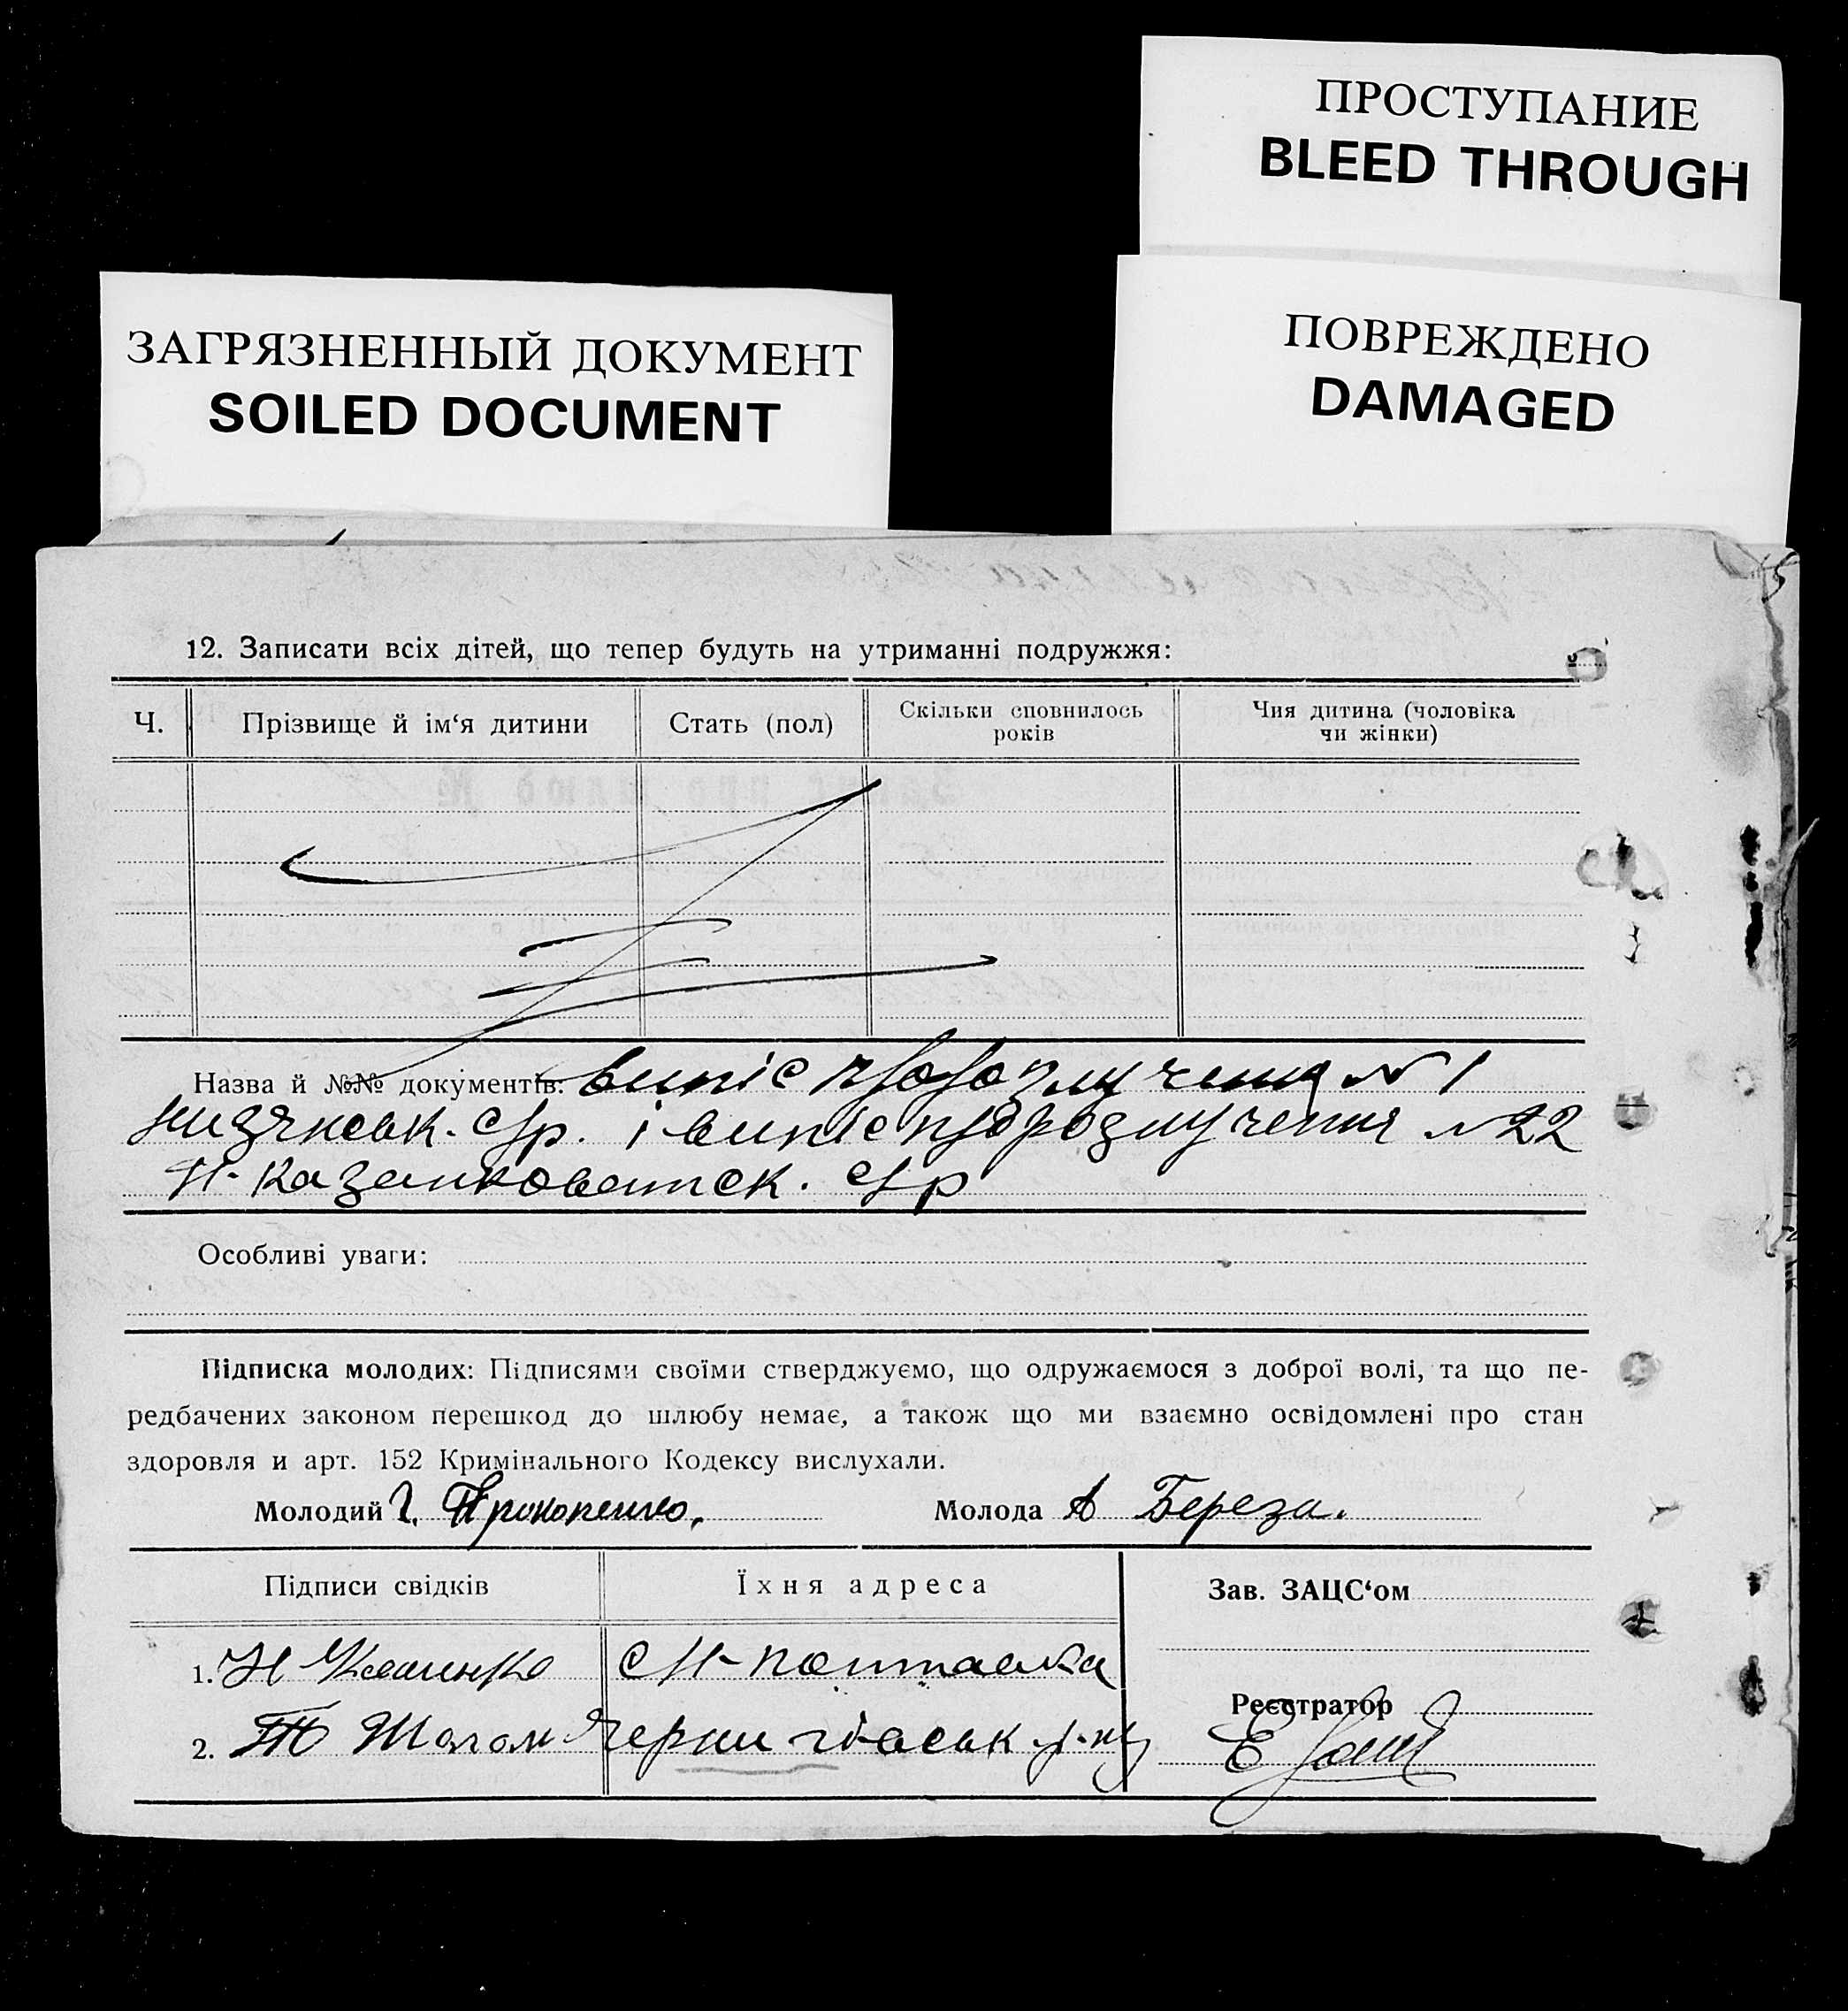 ПРОСТУПАНИЕ
BLEED THROUGH
ПОВРЕЖДЕНО
DAMAGED
ЗАГРЯЗНЕННЫЙ ДОКУМЕНТ
SOILED DOCUMENT
12. Записати всіх дітей, що тепер будуть на утриманні подружжя:
Ч.
Прізвище й ім‘я дитини
Стать (пол)
Скільки сповнилось
років
Чия дитина (чоловіка
чи жінки)
Назва й №№ документів: випіс про розлучення №1
с/р. і випіс про розлучення №22
с/р
Особливі уваги:
Підписка молодих: Підписями своїми стверджуємо, що одружаємося з доброї волі, та що пе-
редбачених законом перешкод до шлюбу немає, а також що ми взаємно освідомлені про стан
здоровля и арт. 152 Кримінального Кодексу вислухали.
Молодий Г. Прокопенко.
Молода А Береза.
Підписи свідків
Їхня адреса
Зав. ЗАЦС‘ом
1. Н
с Н-Полтавка
Реєстратор
2.
Е